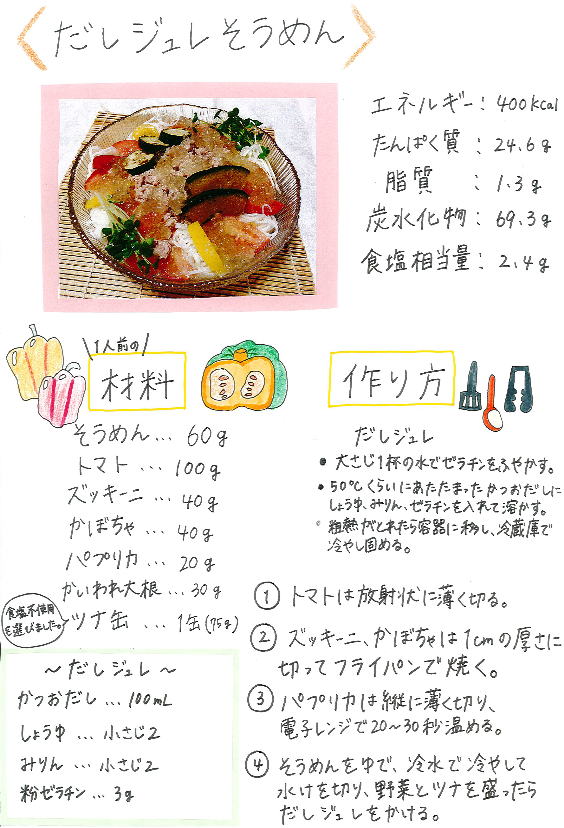 〈だしジュレそうめん〉
エネルギー：400kcal
たんぱく質：24.6g
脂質：1.3g
炭水化物：69.3g
食塩相当量：2.4g
\1人前の/
材料
そうめん…60g
トマト…100g
ズッキーニ…40g
かぼちゃ…40g
パプリカ…20g
かいわれ大根…30g
ツナ缶…1缶(75g)
食塩不使用
を選びました。
〜だしジュレ〜
かつおだし…100mL
しょうゆ…小さじ2
みりん…小さじ2
粉ゼラチン…3g
作り方
だしジュレ
• 大さじ1杯の水でゼラチンをふやかす。
• 50℃くらいにあたたまったかつおだしに
しょうゆ、みりん、ゼラチンを入れて溶かす。
• 粗熱がとれたら容器に移し、冷蔵庫で
冷やし固める。
① トマトは放射状に薄く切る。
② ズッキーニ、かぼちゃは1cmの厚さに
切ってフライパンで焼く。
③ パプリカは縦に薄く切り、
電子レンジで20〜30秒温める。
④ そうめんをゆで、冷水で冷やして
水けを切り、野菜とツナを盛ったら
だしジュレをかける。